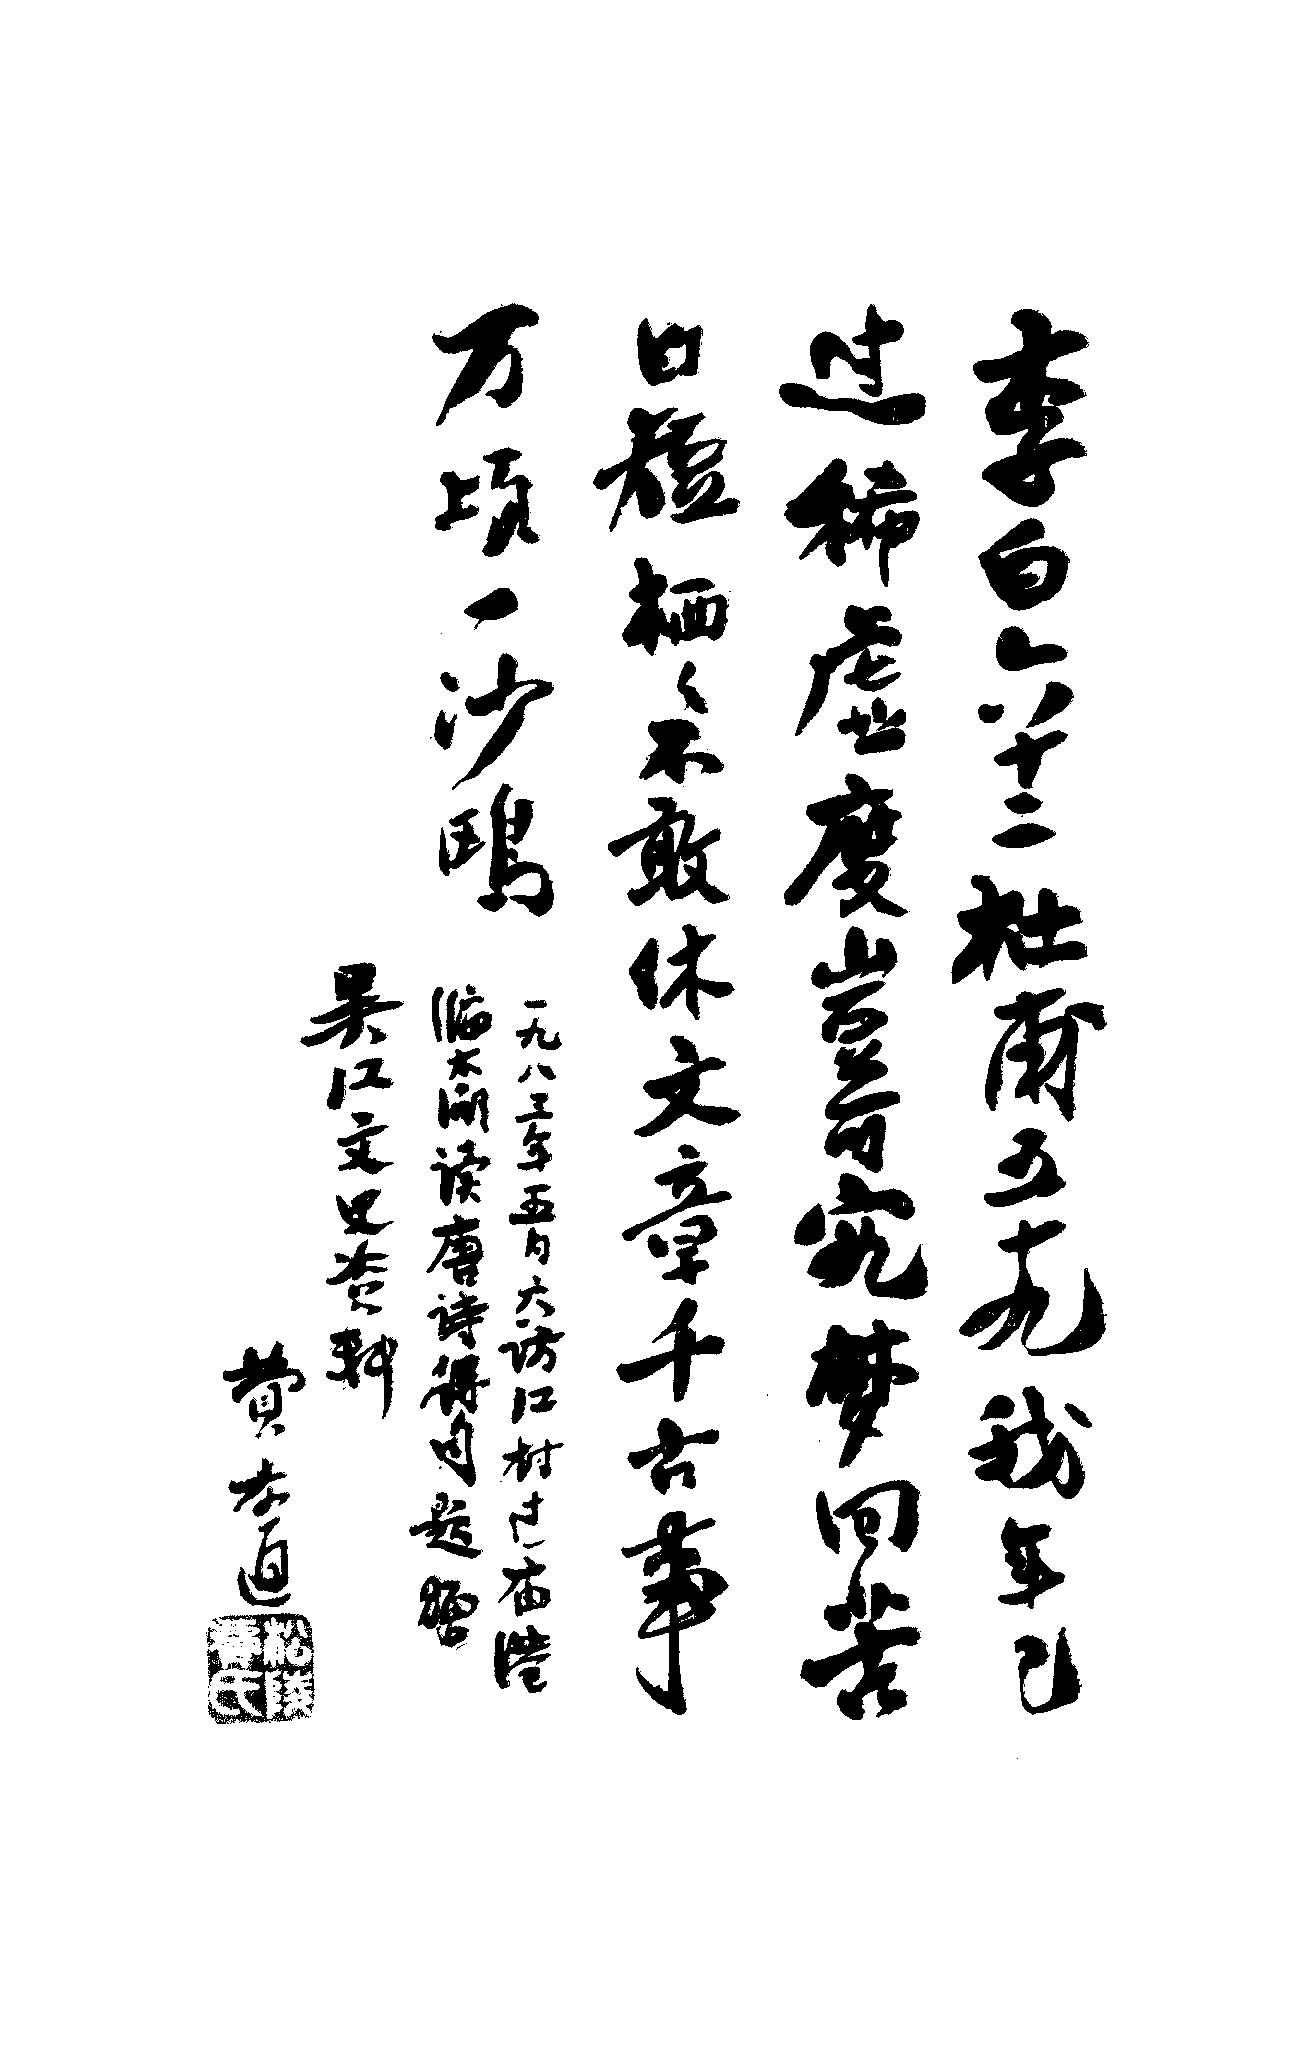 李白六十二杜甫五十九我年已
过稀虚度岂可究梦回苦
日短栖々不敢休文章千古事
万顷一沙鸥
一九八三年五月六访江村过庙港
临太湖读唐诗得句题赠
吴江文史资料
费孝通
松陵费氏